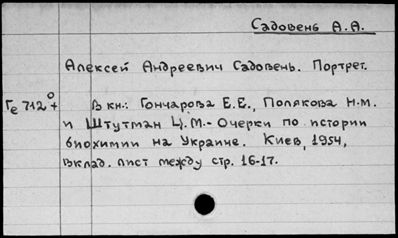 Садовень А.А.
Алексей Андреевич Садовень. Портрет.
Ге 712 о+ В кн.: Гончарова Е.Е., Полякова Н.М.
и Штутман Ц.М.- Очерки по истории
биохимии на Украине. Киев, 1954,
вклад. лист между стр. 16-17.